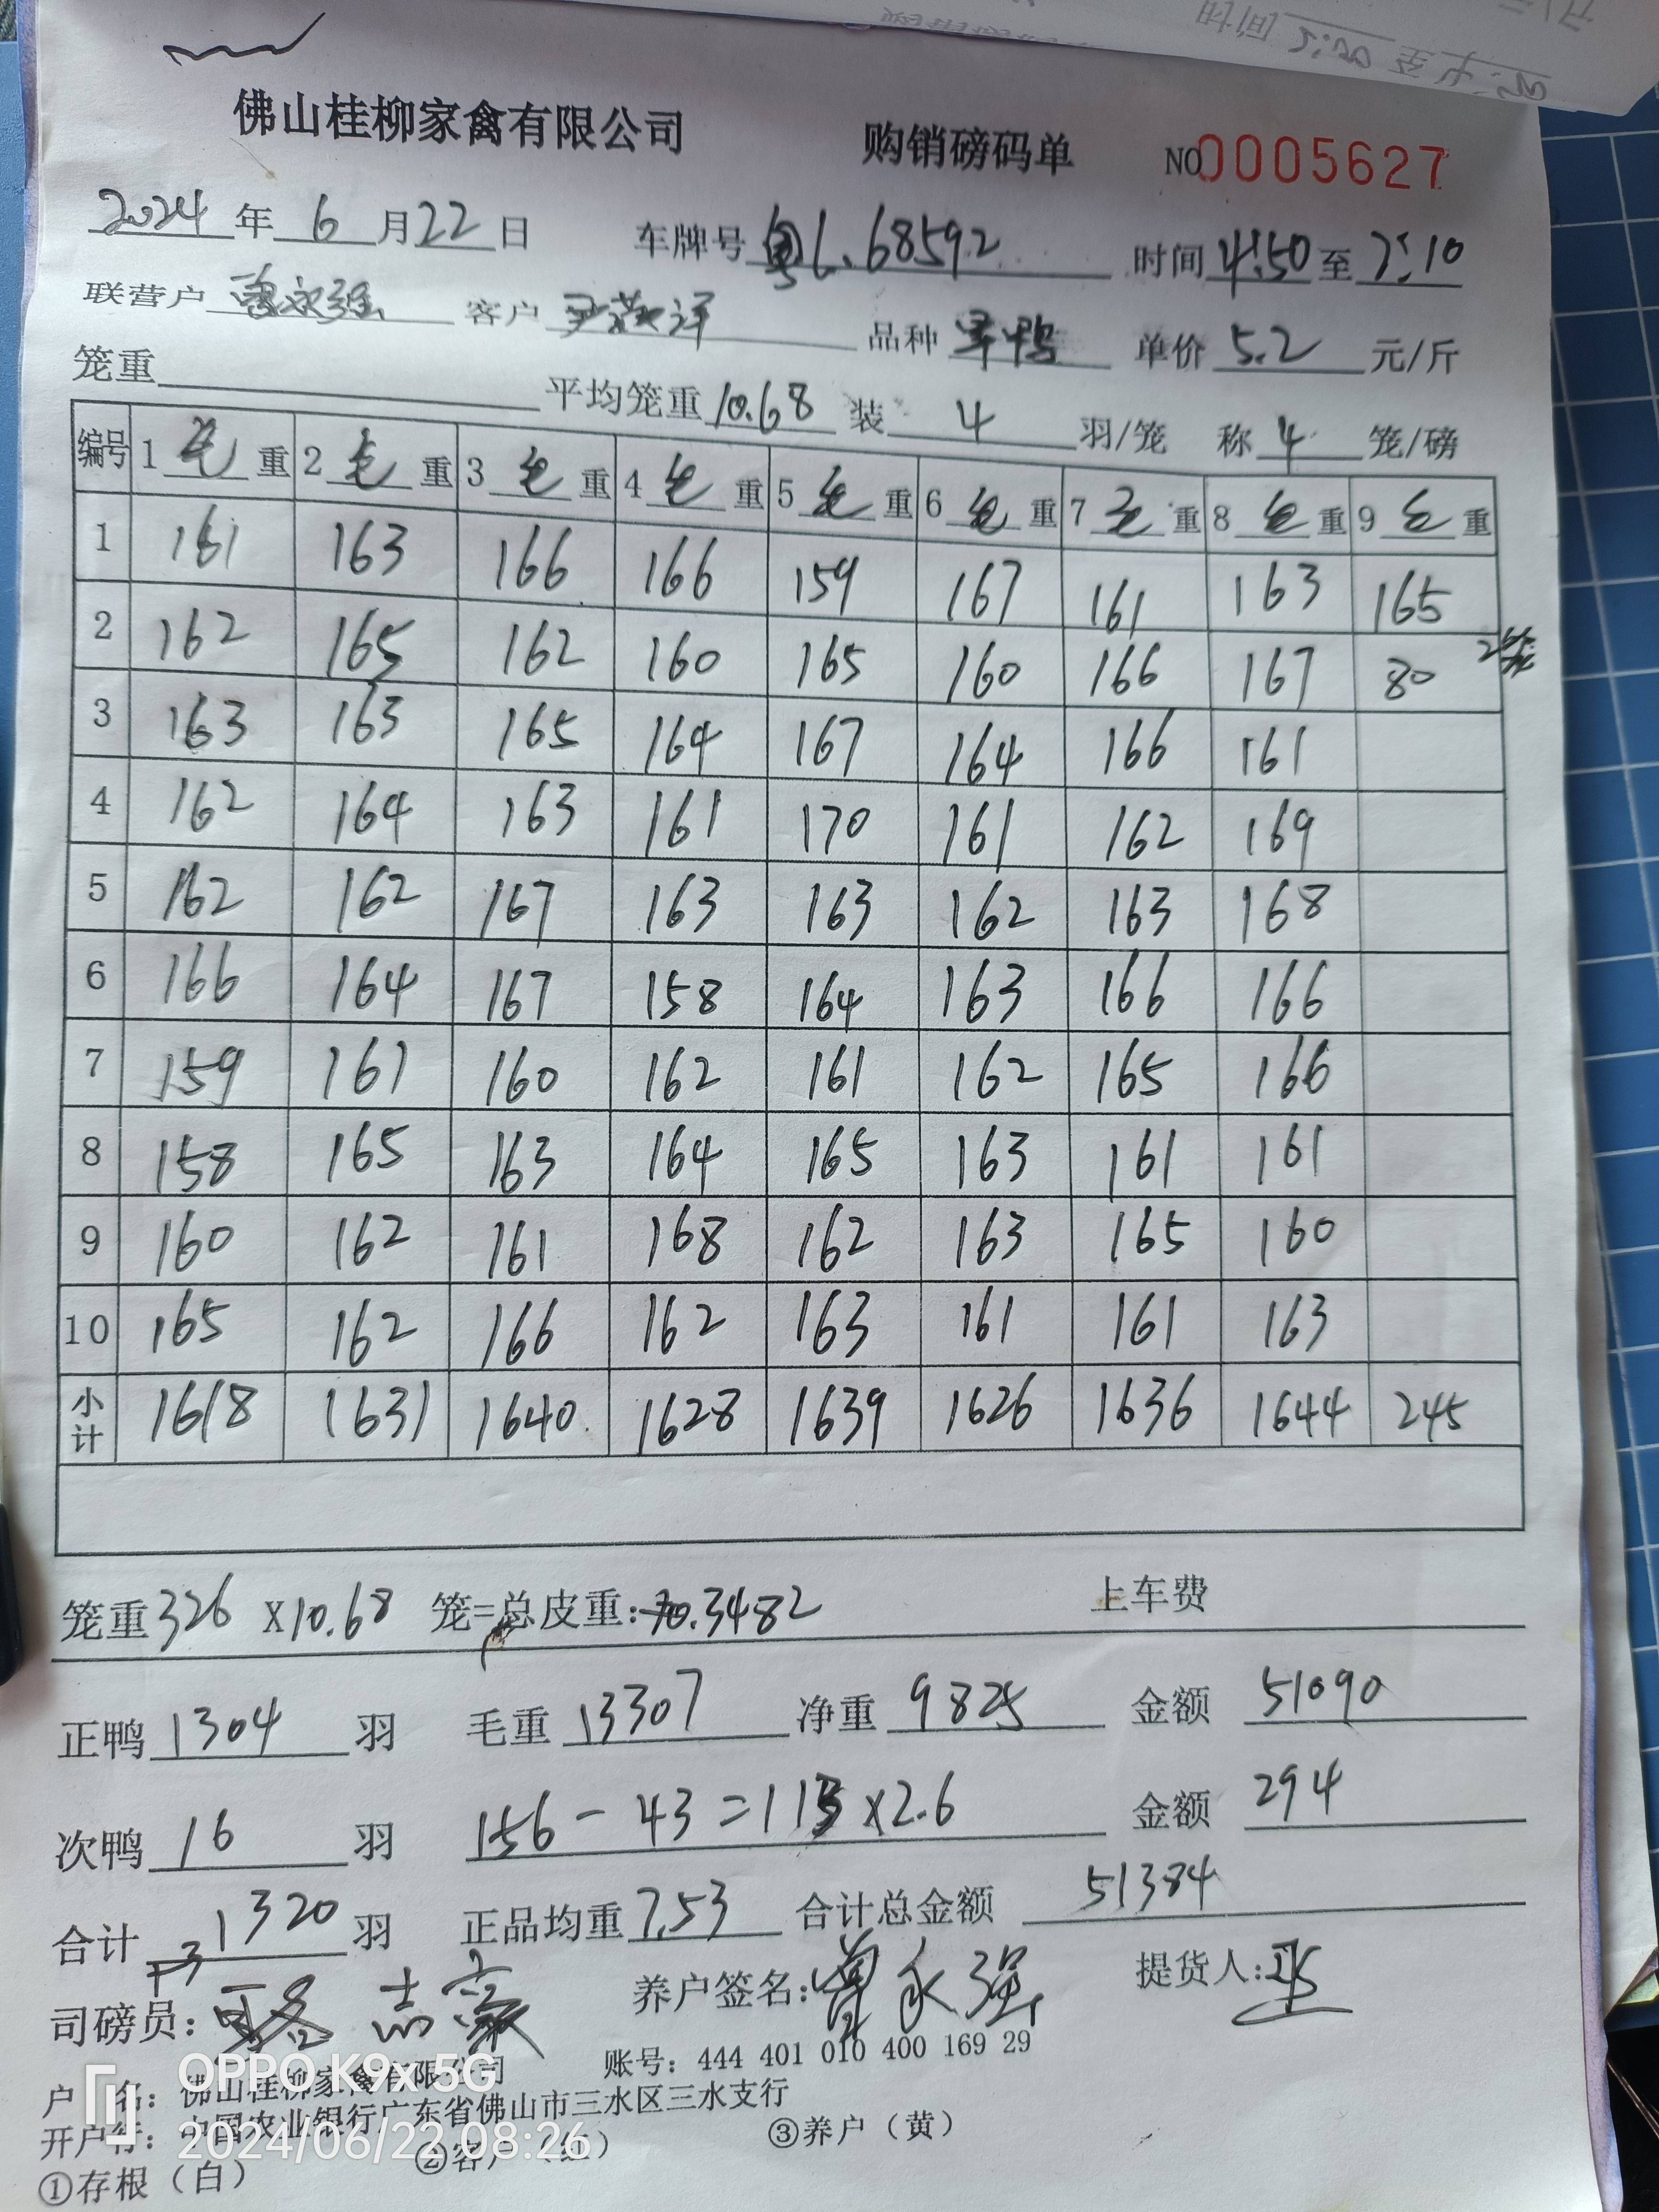 时间 5:00 至
佛山桂柳家禽有限公司 购销磅码单 NO0005627
2024 年 6 月 22 日 车牌号 粤L.68592 时间 4:50 至 7:10
联营户 曾永强 客户 品种 单价 5.2 元/斤
笼重 平均笼重 10.68 装 4 羽/笼 称 4 笼/磅
编号 1 毛 重 2 毛 重 3 毛 重 4 毛 重 5 毛 重 6 毛 重 7 毛 重 8 毛 重 9 毛 重
1 161 163 166 166 159 167 161 163 165
2 162 165 162 160 165 160 166 167 80 2笼
3 163 163 165 164 167 164 166 161
4 162 164 163 161 170 161 162 169
5 162 162 167 163 163 162 163 168
6 166 164 167 158 164 163 166 166
7 159 161 160 162 161 162 165 166
8 158 165 163 164 165 163 161 161
9 160 162 161 168 162 163 165 160
10 165 162 166 162 163 161 161 163
小计 1618 1631 1640 1628 1639 1626 1636 1644 245
笼重 326 X10.68 笼=总皮重: 3482 上车费
正鸭 1304 羽 毛重 13307 净重 9825 金额 51090
次鸭 16 羽 156-43=113x2.6 金额 294
合计 1320 羽 正品均重 7.53 合计总金额 51384
司磅员: 骆志豪 养户签名: 曾永强 提货人:
户 名: 佛山桂柳家禽有限公司 账号: 444 401 010 400 169 29
开户行: 中国农业银行广东省佛山市三水区三水支行
①存根（白） ②客户（红） ③养户（黄）
OPPO K9x 5G
2024/06/22 08:26